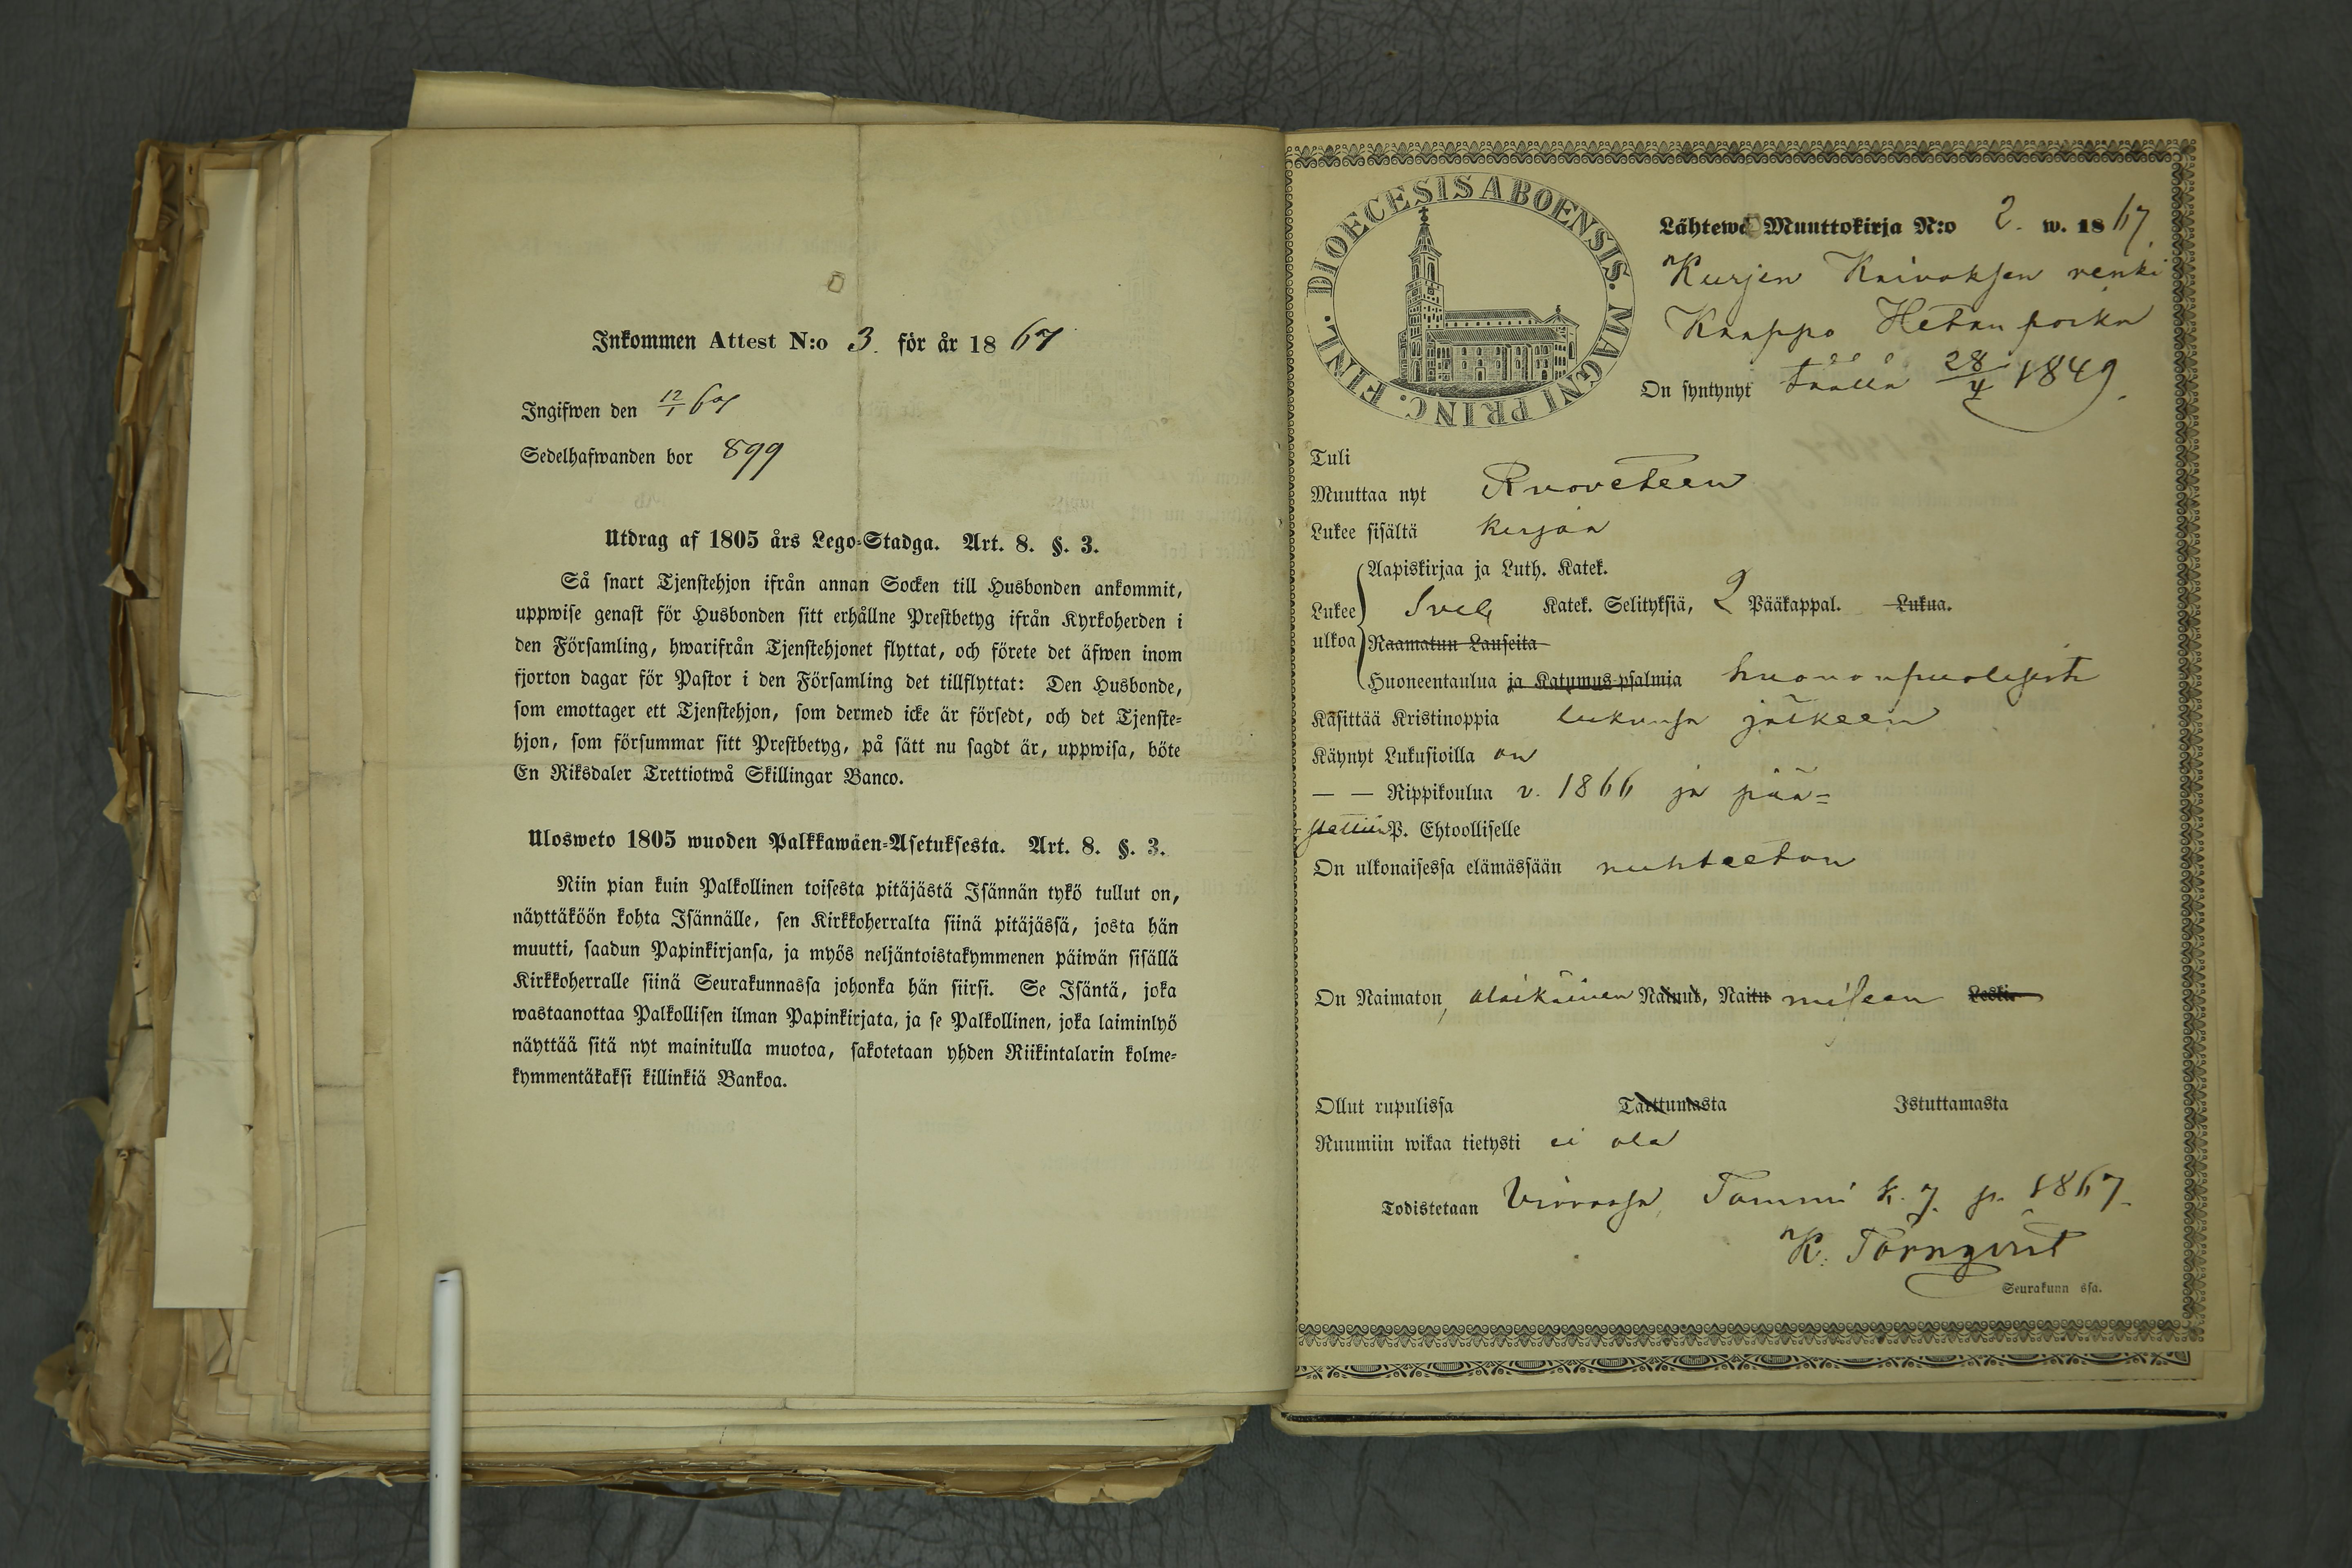 Inkommen Attest N:o 3. för år 1867
Ingifwen den 12/1 67
Sedelhafwanden bor 899
Utdrag af 1805 års Lego-Stadga. Art. 8. §. 3.
Så snart Tjenstehjon ifrån annan Socken till Husbonden ankommit,
uppwise genast för Husbonden sitt erhållne Prestbetyg ifrån Kyrkoherden i
den Församling, hwarifrån Tjenstehjonet flyttat, och förete det äfwen inom
fjorton dagar för Pastor i den Församling det tillflyttat: Den Husbonde,
som emottager ett Tjenstehjon, som dermed icke är försedt, och det Tjenste-
hjon, som försummar sitt Prestbetyg, på sätt nu sagdt är, uppwisa, böte
En Riksdaler Trettiotwå Skillingar Banco.
Ulosweto 1805 wuoden Palkkawäen-Asetuksesta. Art. 8. §. 3.
Niin pian kuin Palkollinen toisesta pitäjästä Isännän tykö tullut on,
näyttäköön kohta Isännälle, sen Kirkkoherralta siinä pitäjässä, josta hän
muutti, saadun Papinkirjansa, ja myös neljäntoistakymmenen päiwän sisällä
Kirkkoherralle siinä Seurakunnassa johonka hän siirsi. Se Isäntä, joka
wastaanottaa Palkollisen ilman Papinkirjata, ja se Palkollinen, joka laiminlyö
näyttää sitä nyt mainitulla muotoa, sakotetaan yhden Riikintalarin kolme-
kymmentäkaksi killinkiä Bankoa.
DIOECESIS ABOENSIS. MAGNI PRINC. FINL.
Lähtewä Muuttokirja N:o 2. w. 1867.
Kurjen Kaivoksen renki
Kaappo Hetan poika
On syntynyt täällä 28/4 1849.
Tuli
Muuttaa nyt Ruoveteen
Lukee sisältä kirjan
Aapiskirjaa ja Luth. Katek.
Lukee Katek. Selityksiä, 2 Pääkappal. Lukua.
ulkoa Raamatun Lauseita
Huoneentaulua ja Katumus-psalmia huonon puolisesti
Käsittää Kristinoppia lukunsa jälkeen
Käynyt Lukusioilla on
— — Rippikoulua v. 1866 ja pää-
stettiin P. Ehtoolliselle
On ulkonaisessa elämässään nuhteeton
On Naimaton, alaikäinen Nainut, Naitu Leski
Ollut rupulissa Tarttumasta Istuttamasta
Ruumiin wikaa tietysti ei ole
Todistetaan Virroissa, Tammi k. 7. p. 1867.
K. Törnqvist
Seurakunn ssa.